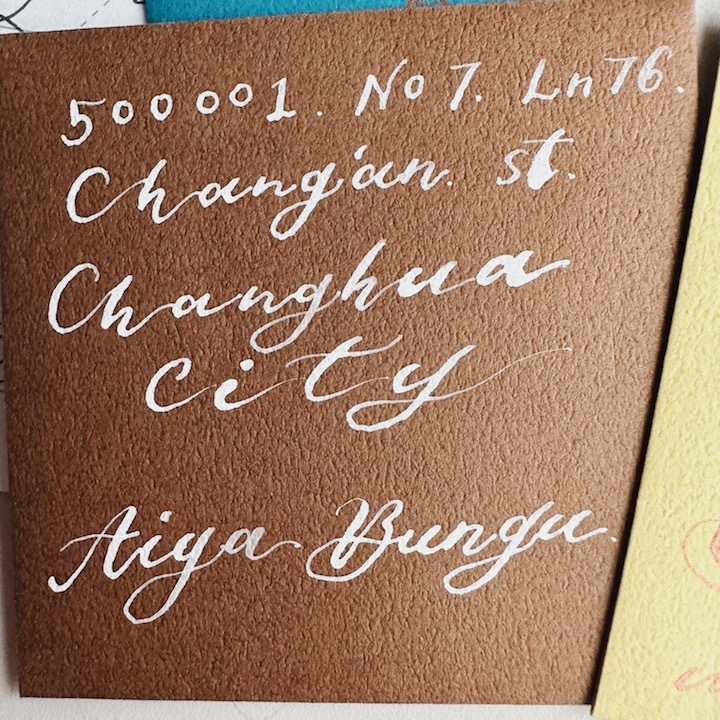 500001. No 7. Ln 76.
Chang'an. st.
Changhua
City
Aiya Bungu.